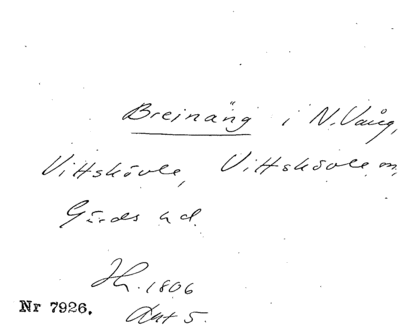 Breinäng i N. Vång,
Vittskövle, Vittskövle sn,
Gärds hd.
1806
Nr 7926. Akt 5.